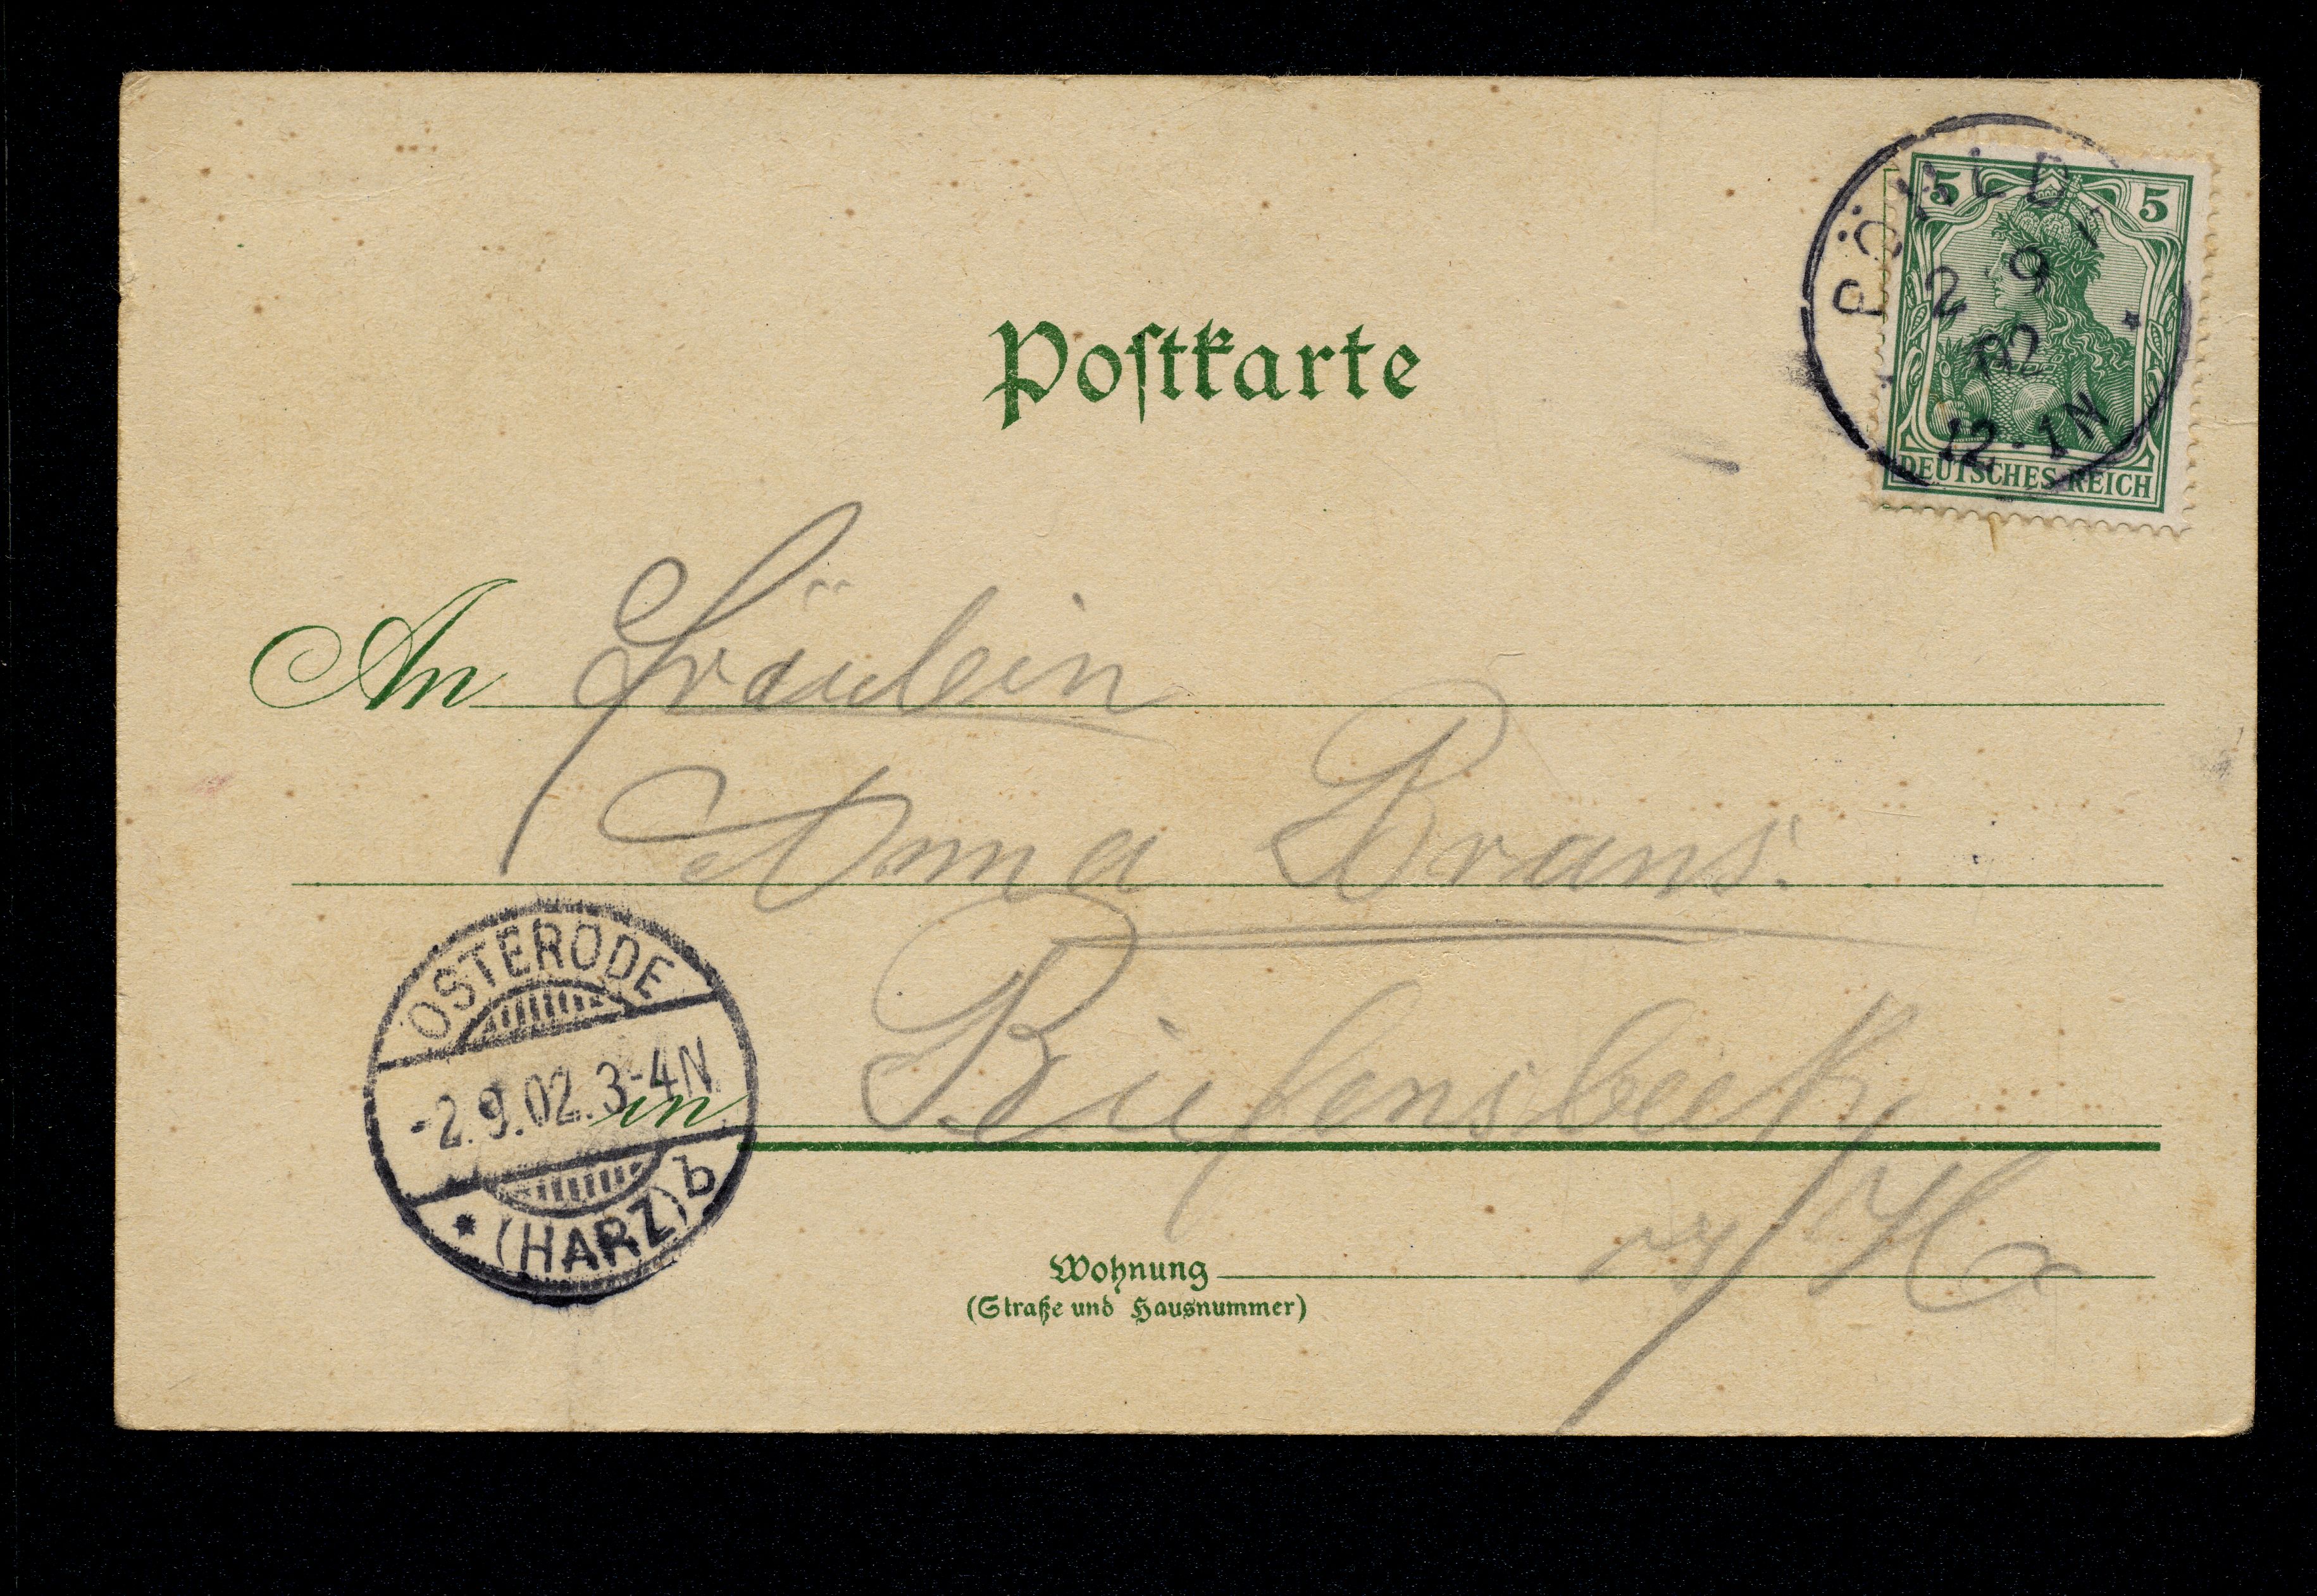 Postkarte
PÖHLDE
2 9
02
12-1N
5 5
DEUTSCHES REICH
An Fräulein
Anna Brans.
OSTERODE
-2.9.02.3-4N
* (HARZ) b
in Riefensbeek
a/H
Wohnung
(Straße und Hausnummer)